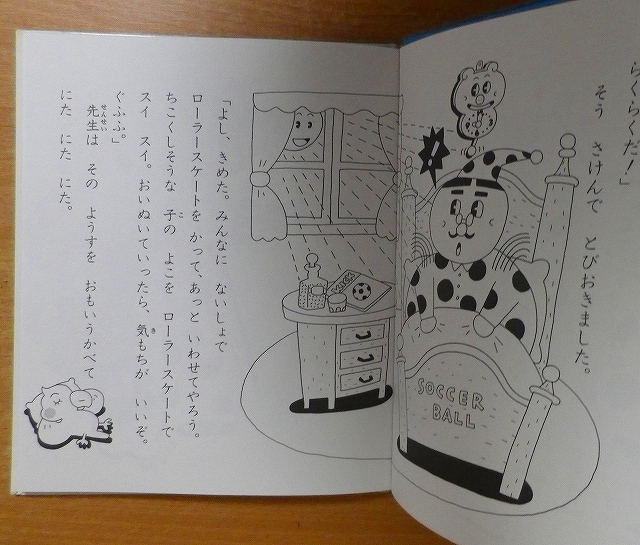 らくらくだ!」
そう さけんで とびおきました。
SOCCER
BALL
「よし、きめた。みんなに ないしょで
ローラースケートを かって、あっと いわせてやろう。
ちこくしそうな 子の よこを ローラースケートで
スイ スイ。おいぬいていったら、気もちが いいぞ。
ぐふふ。」
先生は その ようすを おもいうかべて
にた にた にた。